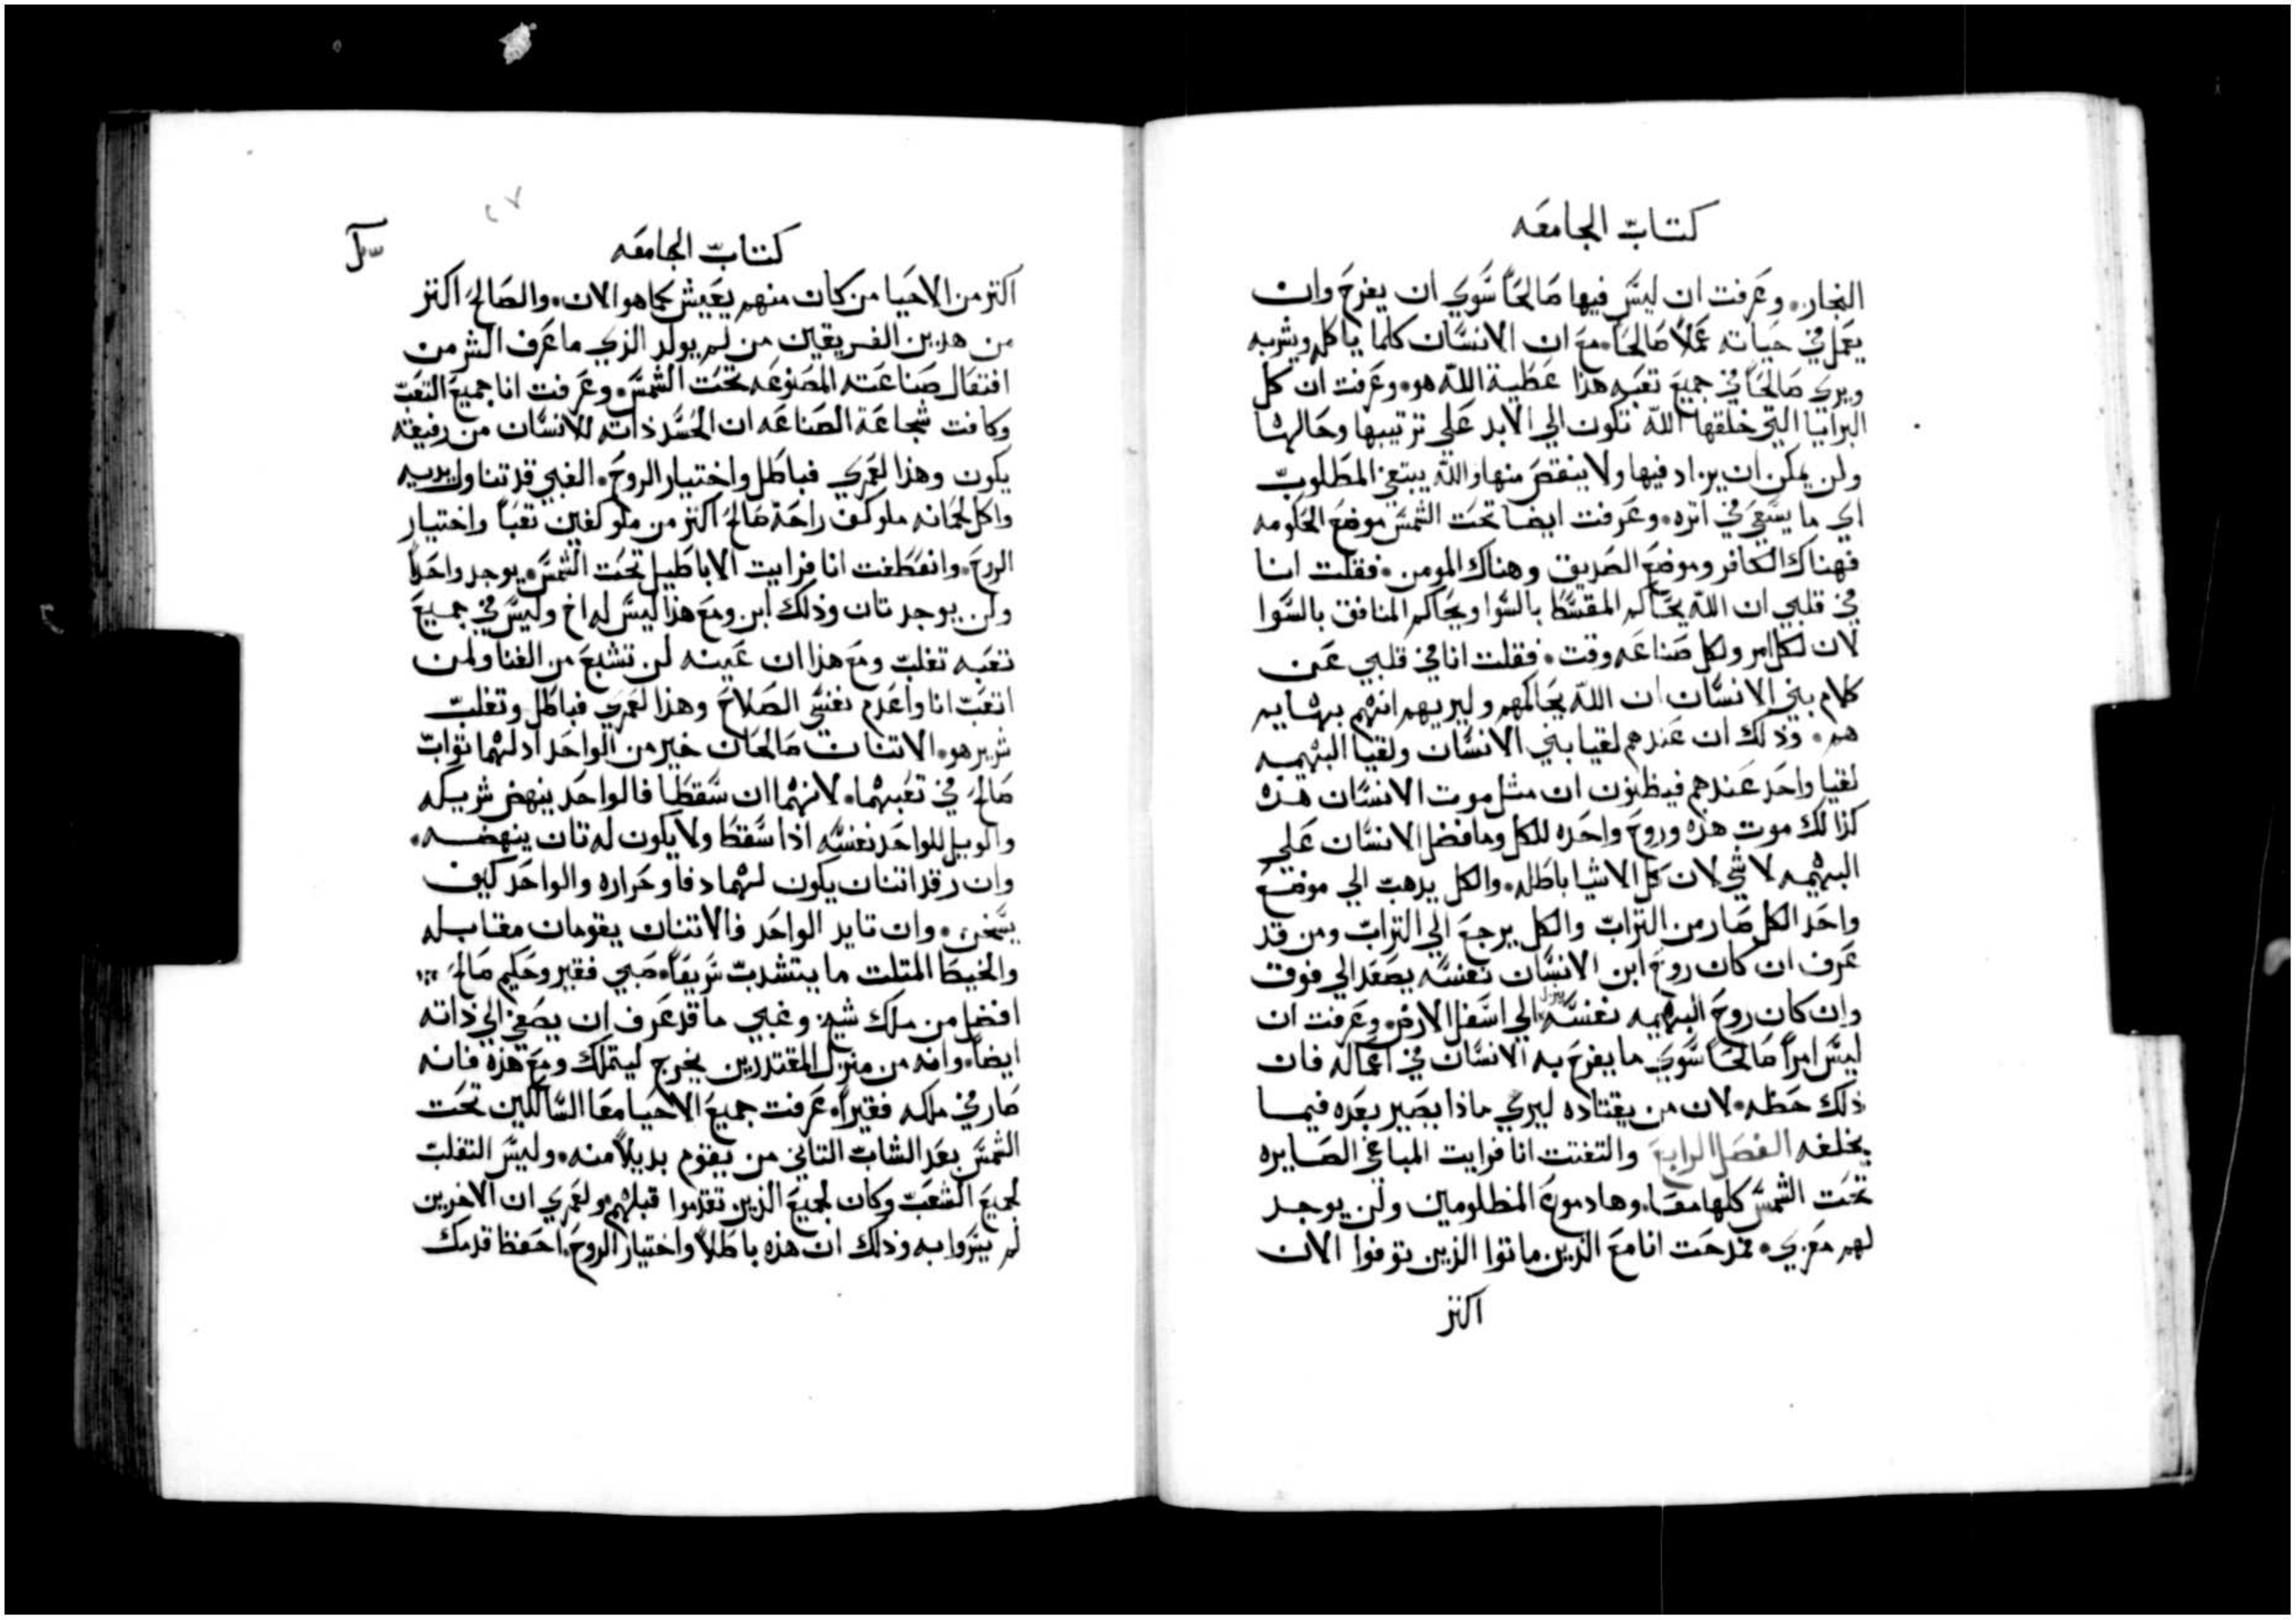 كتاب الجامعه
النجار. وعرفت ان ليس فيها صالحاً سوي ان يفرح وان
يعمل في حياته عملاً صالحاً. مع ان الانسان كلما ياكله ويشربه
ويري صالحاً في جميع تعبه هذا عطية الله هو. وعرفت ان كل
البرايا التي خلقها الله تكون الي الابد علي ترتيبها وحالها
ولن يمكن ان يزاد فيها ولا ينقص منها والله يبتغي المطلوب
اي ما يسعي في اتره. وعرفت ايضا تحت الشمس موضع الحكومه
فهناك الكافر وموضع الصديق وهناك المومن. فقلت انا
في قلبي ان الله يحاكم المقسط بالسوا ويحاكم المنافق بالسوا
لان لكل امر ولكل صناعه وقت. فقلت انا في قلبي عن
كلام بني الانسان ان الله يحاكمهم وليريهم انهم بهايم
هم. وذلك ان عندهم لقيا بني الانسان ولقيا البهيمه
لقيا واحد عندهم فيظنون ان مثل موت الانسان هذه
كذالك موت هذه وروح واحده للكل وما فضل الانسان علي
البهيمه لا شي لان كل الاشيا باطله. والكل يذهب الي موضع
واحد الكل صار من التراب والكل يرجع الي التراب ومن قد
عرف ان كان روح ابن الانسان نفسه يصعد الي فوق
وان كان روح البهيمه نفسه ينزل الي اسفل الارض. وعرفت ان
ليس امراً صالحاً سوي ما يفرح به الانسان في اعماله فان
ذلك حظه. لان من يقتاده ليري ماذا يصير بعده فيما
يخلفه الفصل الرابع والتفتت انا فرايت المباغي الصايره
تحت الشمس كلها معاً. وها دموع المظلومين ولن يوجد
لهم معزي. فمدحت انا مع الذين ماتوا الذين توفوا الان
اكتر
٢٧
كتاب الجامعه
اكتر من الاحيا من كان منهم يعيش كما هو الان. والصالح اكتر
من هذين الفريقين من لم يولد الذي ما عرف الشر من
افتقال صناعته المصنوعه تحت الشمس. وعرفت انا جميع التعب
وكافت شجاعة الصناعه ان الحسد ذاته للانسان من رفيقه
يكون وهذا لعمري فباطل واختيار الروح. الغبي قد تناول يديه
واكل لحمانه ملو كف راحة صالح اكتر من ملو كفين تعباً واختيار
الروح. وانعطفت انا فرايت الاباطيل تحت الشمس. يوجد واحداً
ولن يوجد تان وذلك ابن ومع هذا ليس له اخ وليس في جميع
تعبه تغلب ومع هذا ان عينه لن تشبع من الغنا ولمن
اتعب انا واعدم نفسي الصلاح وهذا لعمري فباطل وتغلب
شرير هو. الاتنان صالحان خير من الواحد اذ لهما ثواب
صالح في تعبهما. لانهما ان سقطا فالواحد ينهض شريكه
والويل للواحد نفسه اذا سقط ولا يكون له تان ينهضه.
وان رقد اتنان يكون لهما دفا وحراره والواحد كيف
يسخن. وان تايد الواحد فالاتنان يقومان مقابله
والخيط المتلت ما يتشدب سريعاً. صبي فقير وحكيم صالح
افضل من ملك شيخ وغبي ما قد عرف ان يصغي الي ذاته
ايضاً. وانه من منزل المقتدرين يخرج ليتملك ومع هذه فانه
صار في ملكه فقيراً. عرفت جميع الاحيا معا السالكين تحت
الشمس بعد الشاب التاني من يقوم بديلاً منه. وليس التغلب
لجميع الشعب وكان لجميع الذين تقدموا قبلهم ولعمري ان الاخرين
لم يسروا به وذلك ان هذه باطلاً واختيار الروح. احفظ قدمك